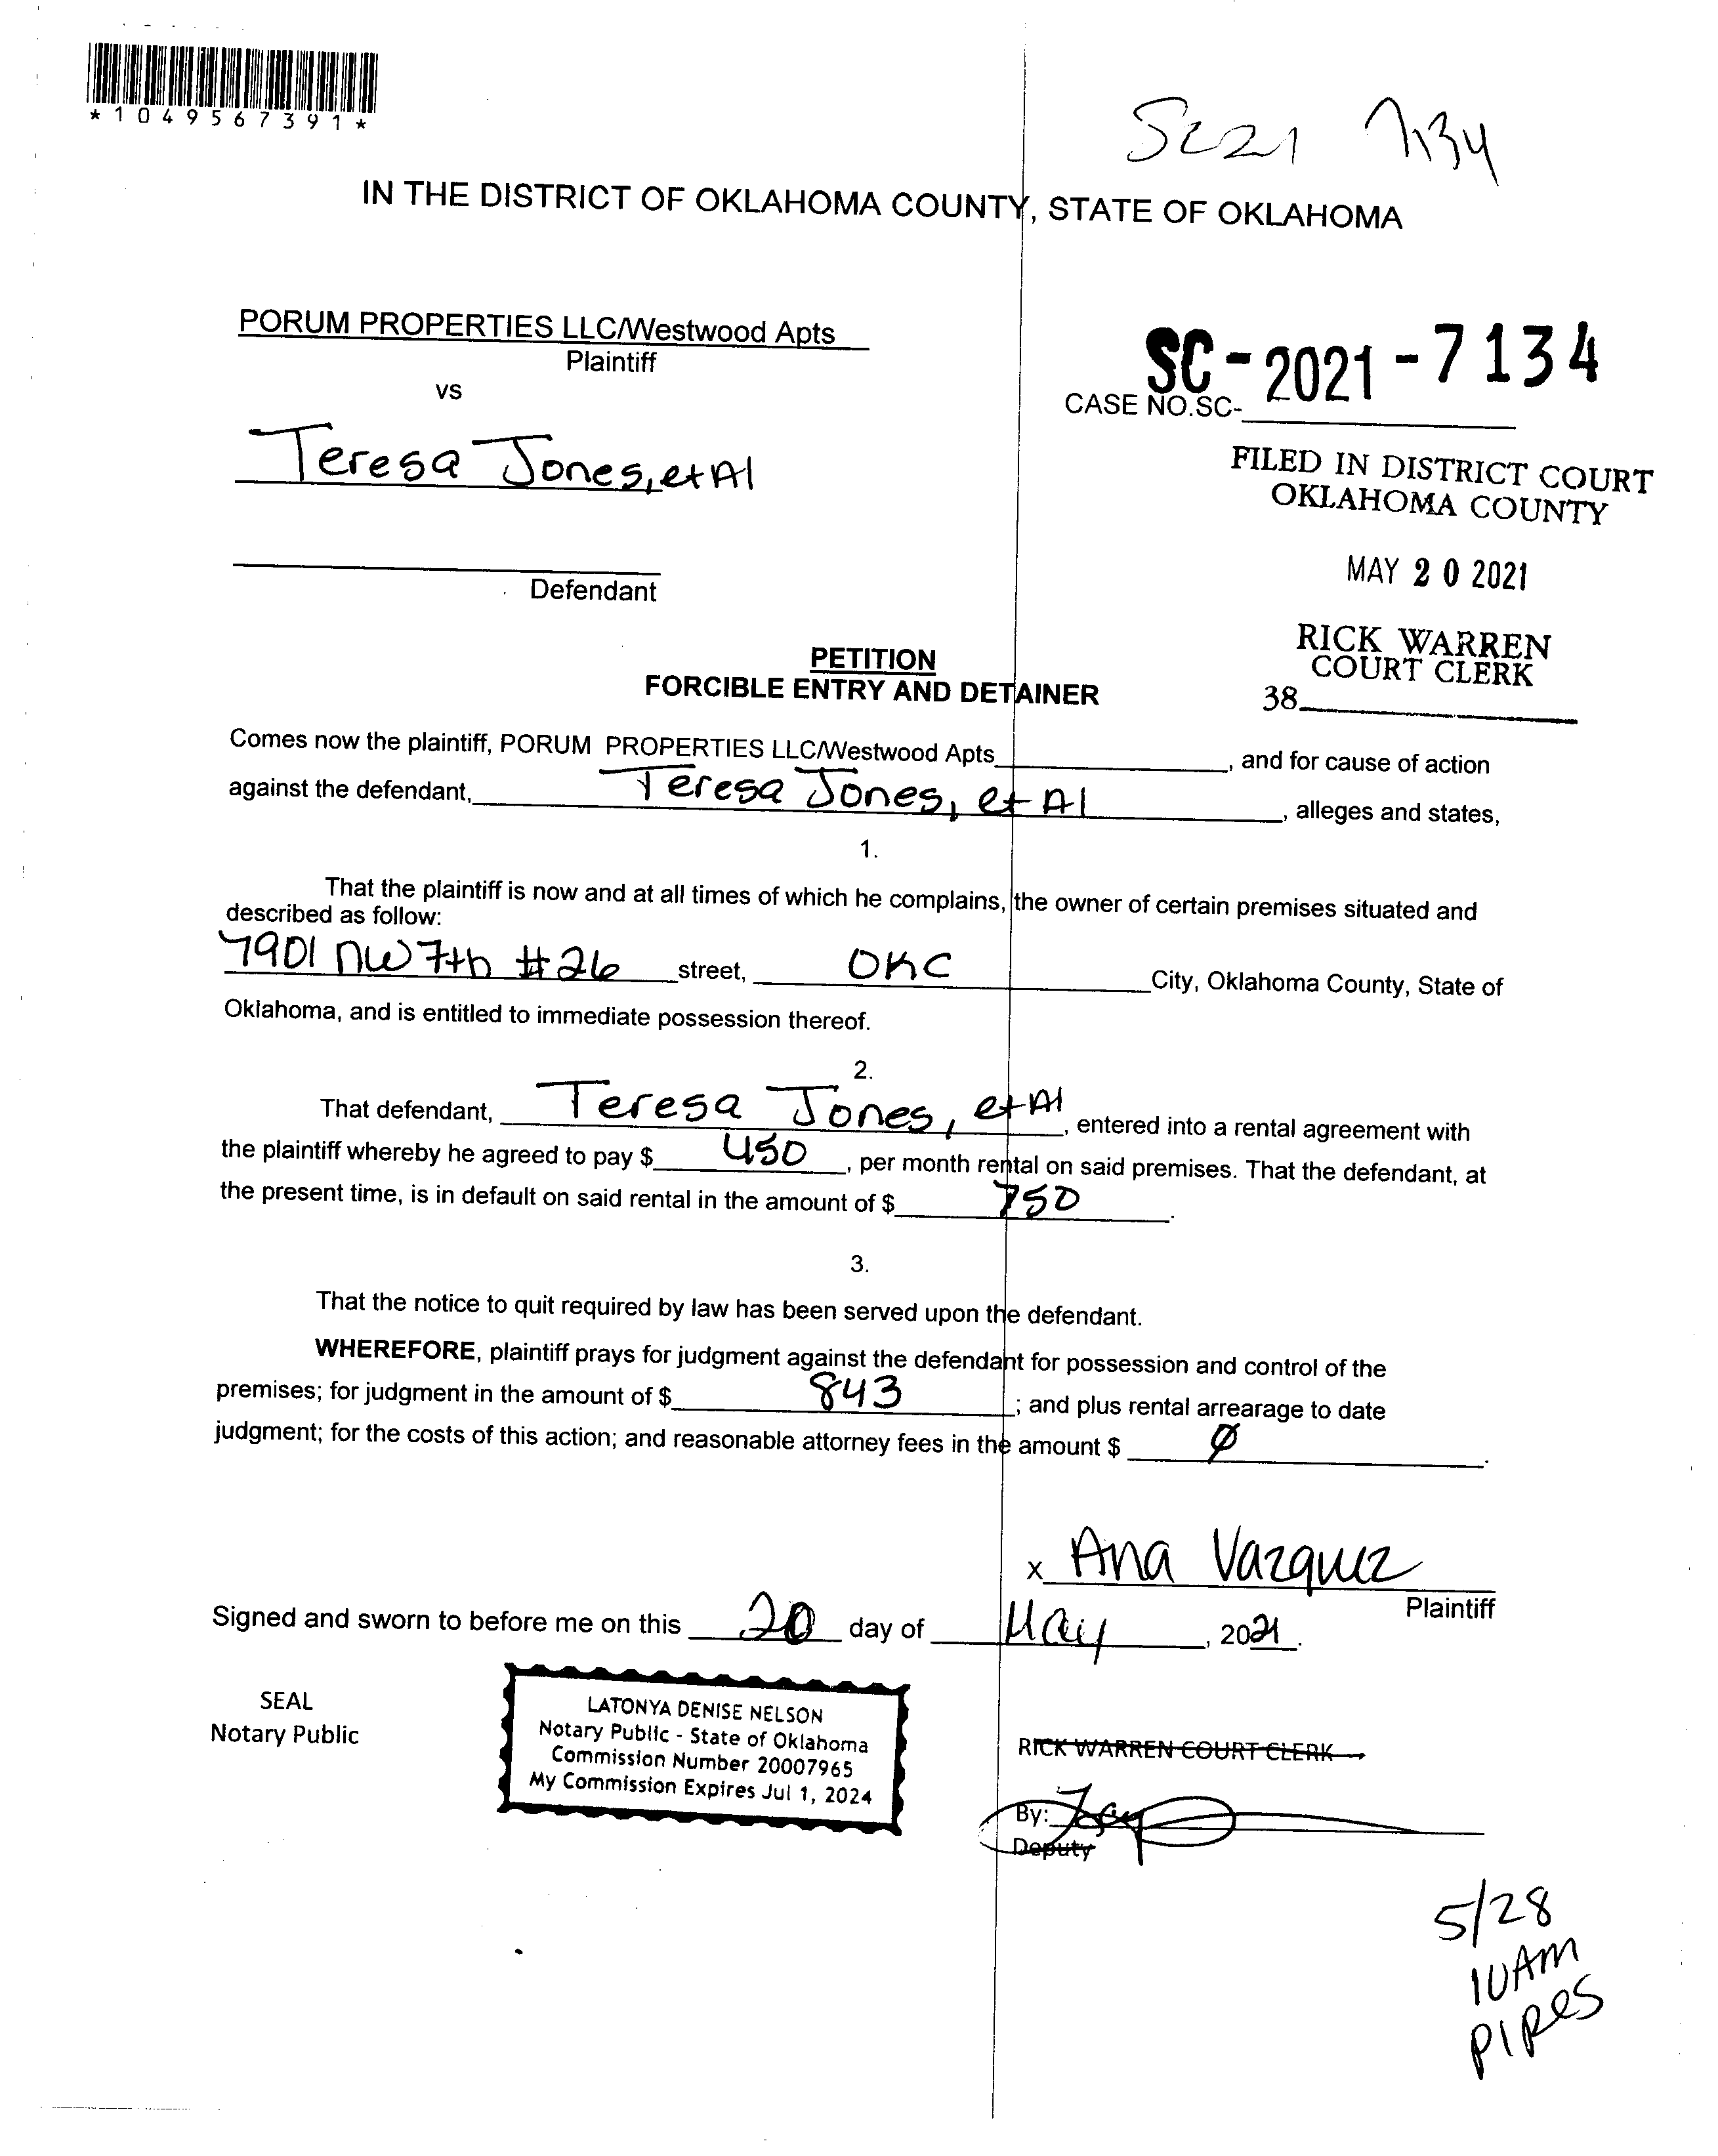 *1049567391*
SC21 7134
IN THE DISTRICT OF OKLAHOMA COUNTY, STATE OF OKLAHOMA
PORUM PROPERTIES LLC/Westwood Apts
Plaintiff
vs
SC-2021-7134
CASE NO.SC-
Teresa Jones, et Al
FILED IN DISTRICT COURT
OKLAHOMA COUNTY
MAY 20 2021
Defendant
RICK WARREN
COURT CLERK
38
PETITION
FORCIBLE ENTRY AND DETAINER
Comes now the plaintiff, PORUM PROPERTIES LLC/Westwood Apts, and for cause of action
against the defendant, Teresa Jones, et Al, alleges and states,
1.
That the plaintiff is now and at all times of which he complains, the owner of certain premises situated and
described as follow:
7901 NW 7th #26 street, OKC City, Oklahoma County, State of
Oklahoma, and is entitled to immediate possession thereof.
2.
That defendant, Teresa Jones, et Al, entered into a rental agreement with
the plaintiff whereby he agreed to pay $ 450, per month rental on said premises. That the defendant, at
the present time, is in default on said rental in the amount of $ 750.
3.
That the notice to quit required by law has been served upon the defendant.
WHEREFORE, plaintiff prays for judgment against the defendant for possession and control of the
premises; for judgment in the amount of $ 843; and plus rental arrearage to date
judgment; for the costs of this action; and reasonable attorney fees in the amount $ Ø.
x Ana Vazquez
Plaintiff
Signed and sworn to before me on this 20 day of May, 2021.
SEAL
Notary Public
LATONYA DENISE NELSON
Notary Public - State of Oklahoma
Commission Number 20007965
My Commission Expires Jul 1, 2024
RICK WARREN COURT CLERK
By:
Deputy
5/28
10AM
PIRES